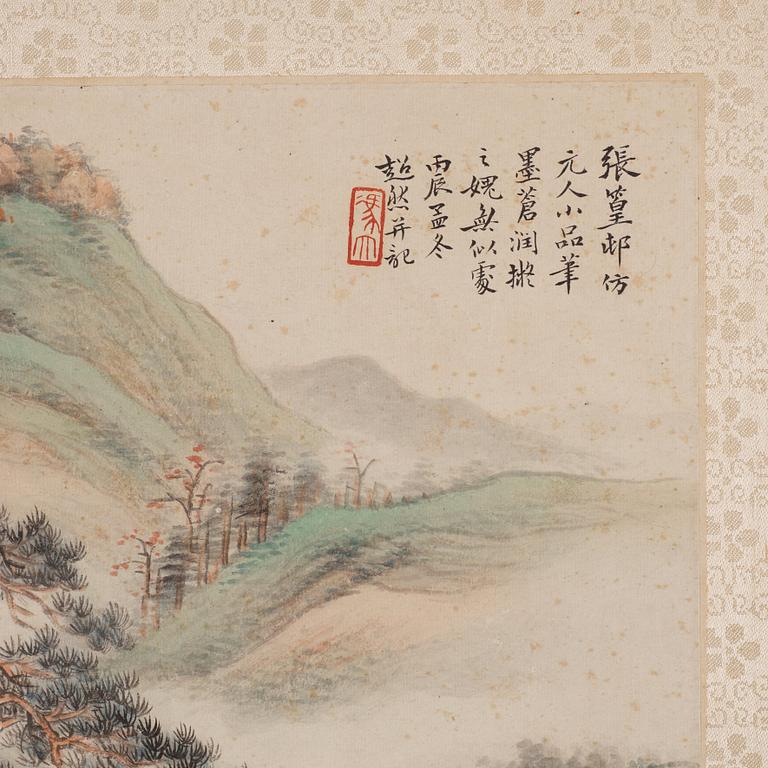 張篁邨仿
元人小品筆
墨蒼潤擬
之媿無似處
丙辰孟冬
超然并記
馮大